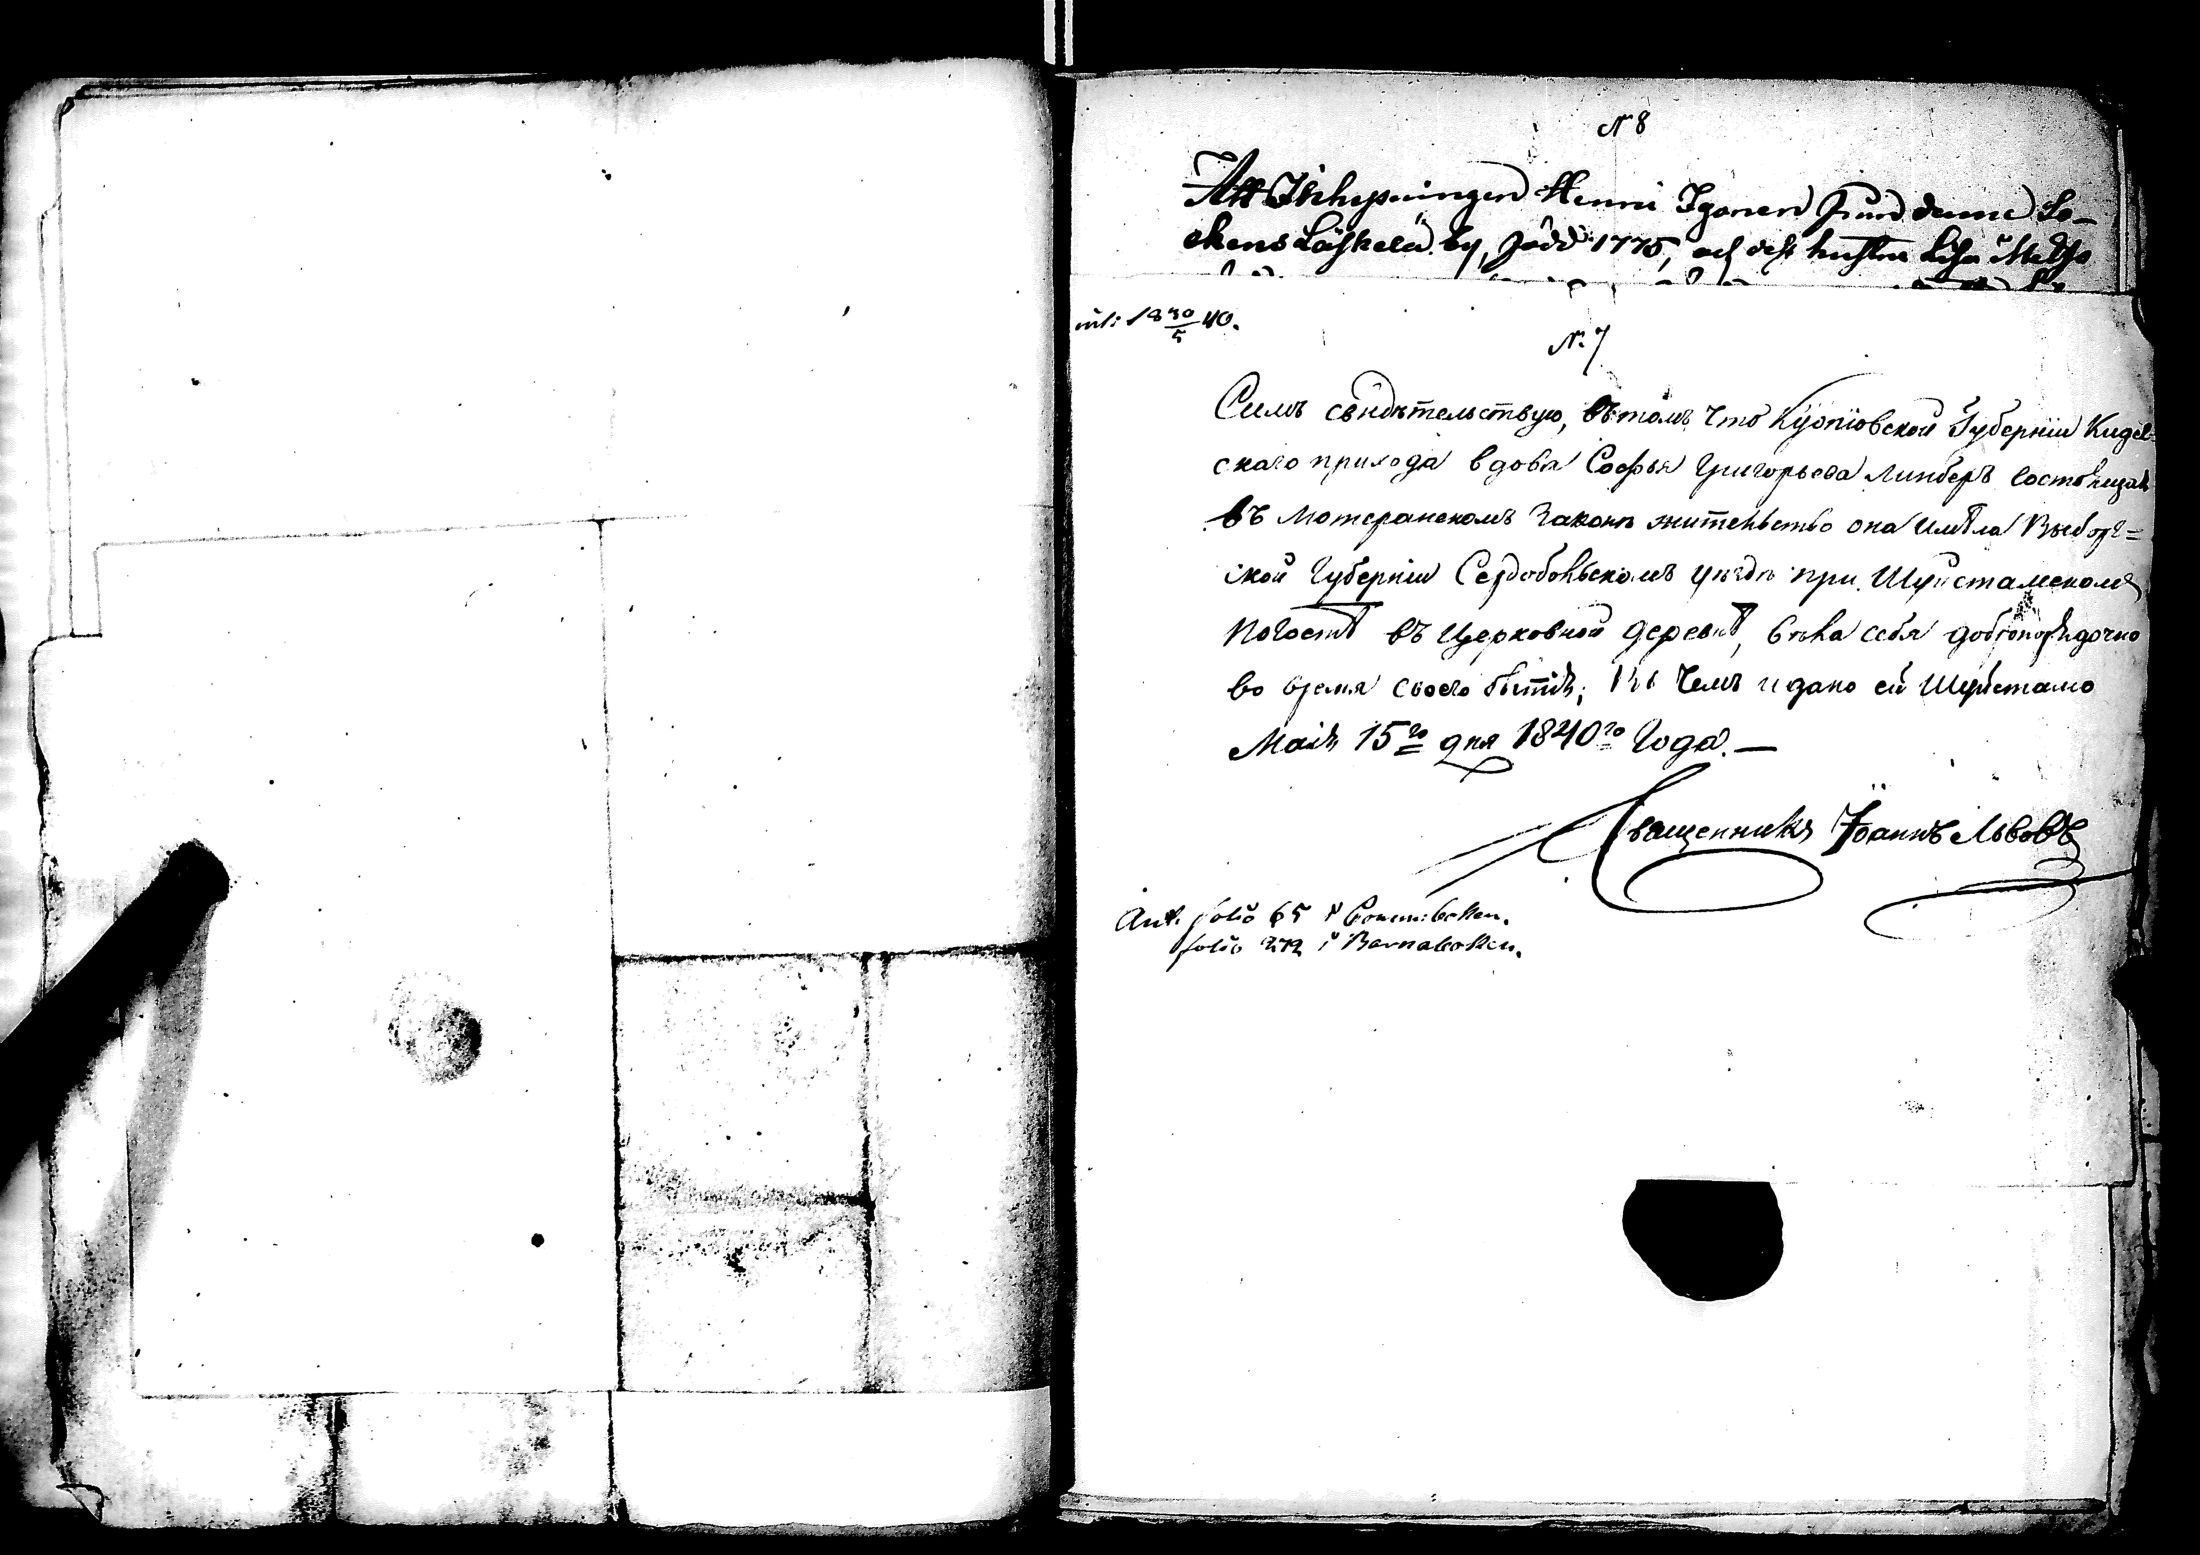 N 8
Att Inhysningen Henric Igonen från denne So-
ckens Läskelä by, född 1775, och dess hustru Lisa Matts
inl: 18 30/5 40.
N. 7
Симъ свидѣтельствую, въ томъ что Куопіовской Губерніи Кидел-
скаго прихода вдова Софья Григорьева Линберъ состоящая
въ Лютеранскомъ законѣ жительство она имѣла Выборг=
ской Губерніи Сердобольскомъ уѣздѣ при Шуистамскомъ
погостѣ въ Церковной деревнѣ, вѣла себя добропорядочно
во время своего бытія; въ чемъ и дано ей Шуйстамо
Маія 15го дня 1840го Года. —
Священникъ Іоаннъ Львовъ
Ant. folio 65 i Comm:boken.
folio 272 i Barnaboken.